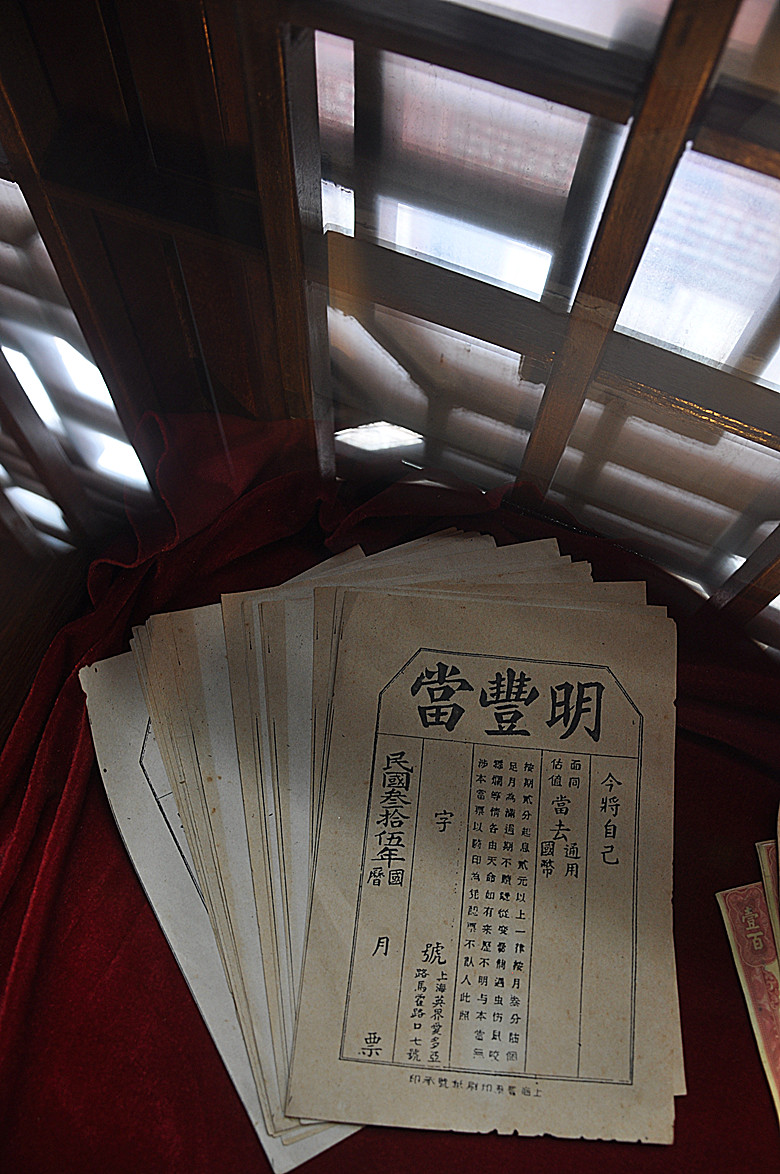 明豐當
今將自己
面同
估值
當去
通用
國幣
按期貳分起息貳元以上一律按月叁分 個
足月為滿過期不贖聽從变賣倘遇虫伤鼠咬
爛等情各由天命如有来歷不明与本當無
涉本當票以 印為凭認票不認人此照
字 號
上海英界愛多亞
路馬霍路口七號
民國叁拾伍年國曆 月 票
上海 印刷 號承印
壹百